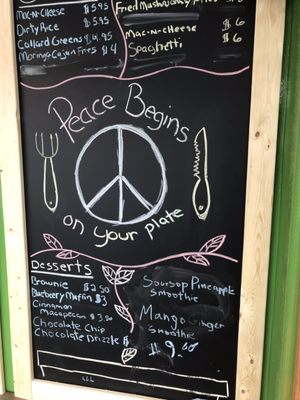 Mac-n-Cheese $5.95
Dirty Rice $5.95
Collard Greens
Moringa Cajun Fries $4
Fried Mushroom
Mac-n-Cheese $6
Spaghetti $6
Peace Begins
on your plate
Desserts
Brownie $2.50
Blueberry Muffin $3
Cinnamon
Chocolate Chip
Chocolate Drizzle $
Soursop Pineapple
Smoothie
Mango Ginger
Smoothie